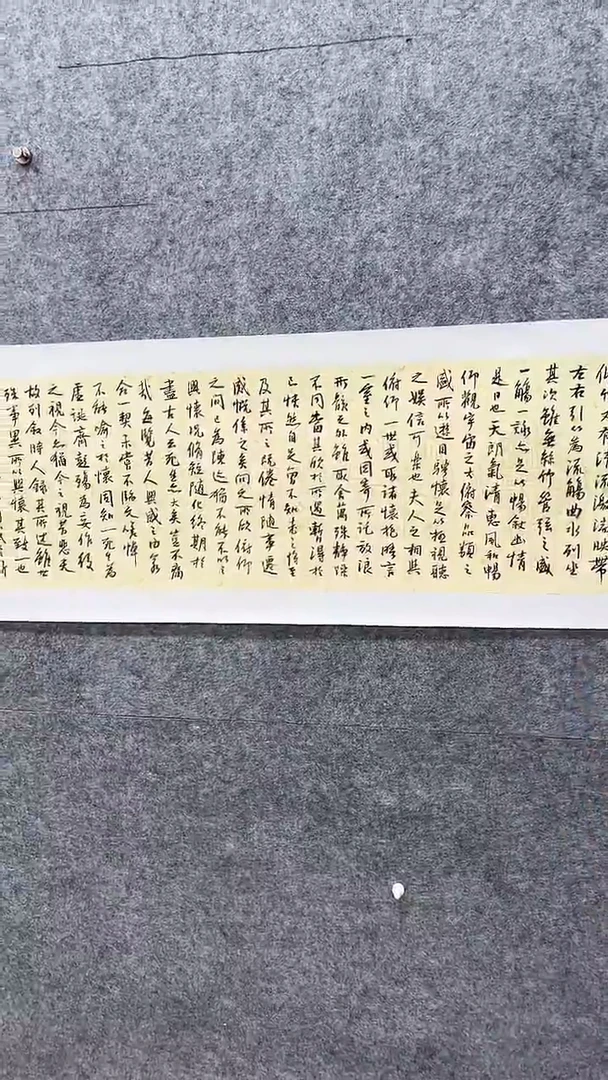 清流激湍映帶
左右引以為流觴曲水列坐
其次雖無絲竹管弦之盛
一觴一詠亦足以暢敘幽情
是日也天朗氣清惠風和暢
仰觀宇宙之大俯察品類之
盛所以遊目騁懷足以極視聽
之娛信可樂也夫人之相與
俯仰一世或取諸懷抱晤言
一室之內或因寄所託放浪
形骸之外雖取舍萬殊靜躁
不同當其欣於所遇暫得於
己怏然自足曾不知老之將至
及其所之既倦情隨事遷
感慨係之矣向之所欣俯仰
之間已為陳迹猶不能不以之
興懷況脩短隨化終期於
盡古人云死生亦大矣豈不痛
哉每覽昔人興感之由若
合一契未嘗不臨文嗟悼
不能喻之於懷固知一死生為
虛誕齊彭殤為妄作後
之視今亦猶今之視昔悲夫
故列敘時人錄其所述雖世
殊事異所以興懷其致一也